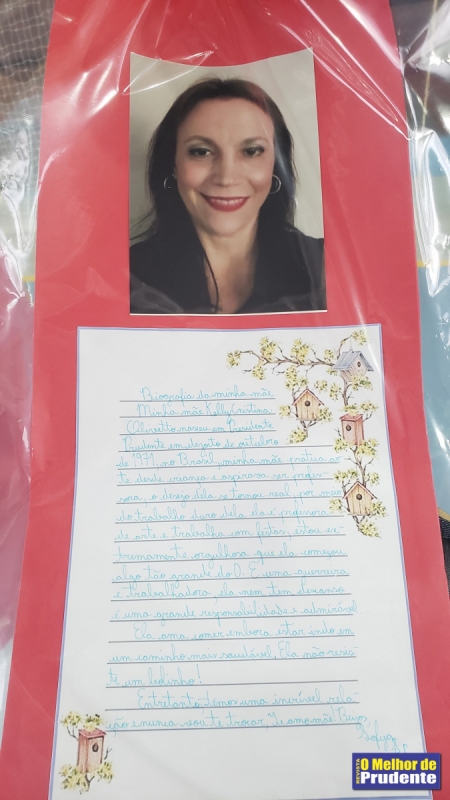 Biografia da minha mãe
Minha mãe Kelly Cristina
nasceu em Presidente
Prudente em dezoito de outubro
de 1971, no Brasil, minha mãe pratica ar-
te desde criança e aspirava ser profes-
sora, o desejo dela se tornou real, por meio
do trabalho duro dela ela é professora
de arte e trabalha com festas, estou ex-
tremamente orgulhosa que ela começou
algo tão grande do 0. É uma guerreira
e trabalhadora, ela nem tem descanso
é uma grande responsabilidade e admirável
Ela ama comer embora estar indo em
um caminho mais saudável, Ela não resis-
te um bolinho!
Entretanto temos uma incrível rela-
ção e nunca vou te trocar, Te amo mãe! Beijos
REVISTA
O Melhor de
Prudente